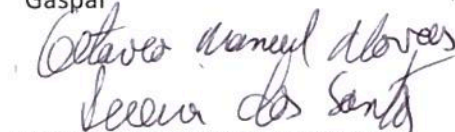 Gaspar
Octávio Manuel Moraes
Pereira dos Santos